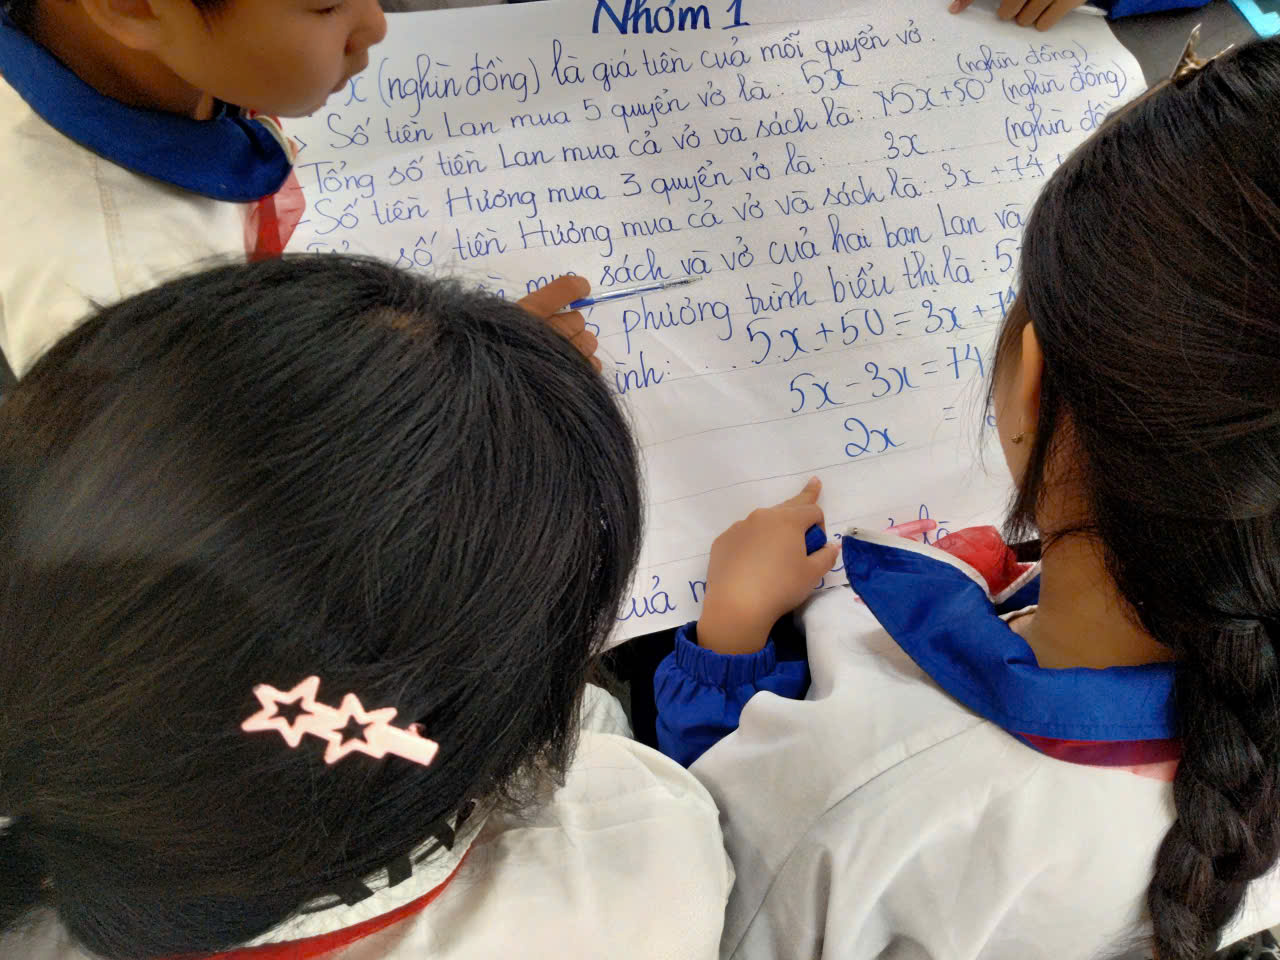 Nhóm 1
x (nghìn đồng) là giá tiền cuả mỗi quyển vở.
Số tiền Lan mua 5 quyển vở là: 5x (nghìn đồng)
- Tổng số tiền Lan mua cả vở và sách là: 5x+50 (nghìn đồng)
- Số tiền Hương mua 3 quyển vở là: 3x (nghìn
số tiền Hương mua cả vở và sách là: 3x + 74
sách và vở cuả hai bạn Lan và
phương trình biểu thị là: 5
ình: 5x + 50 = 3x + 74
5x - 3x = 74
2x =
là
uả m